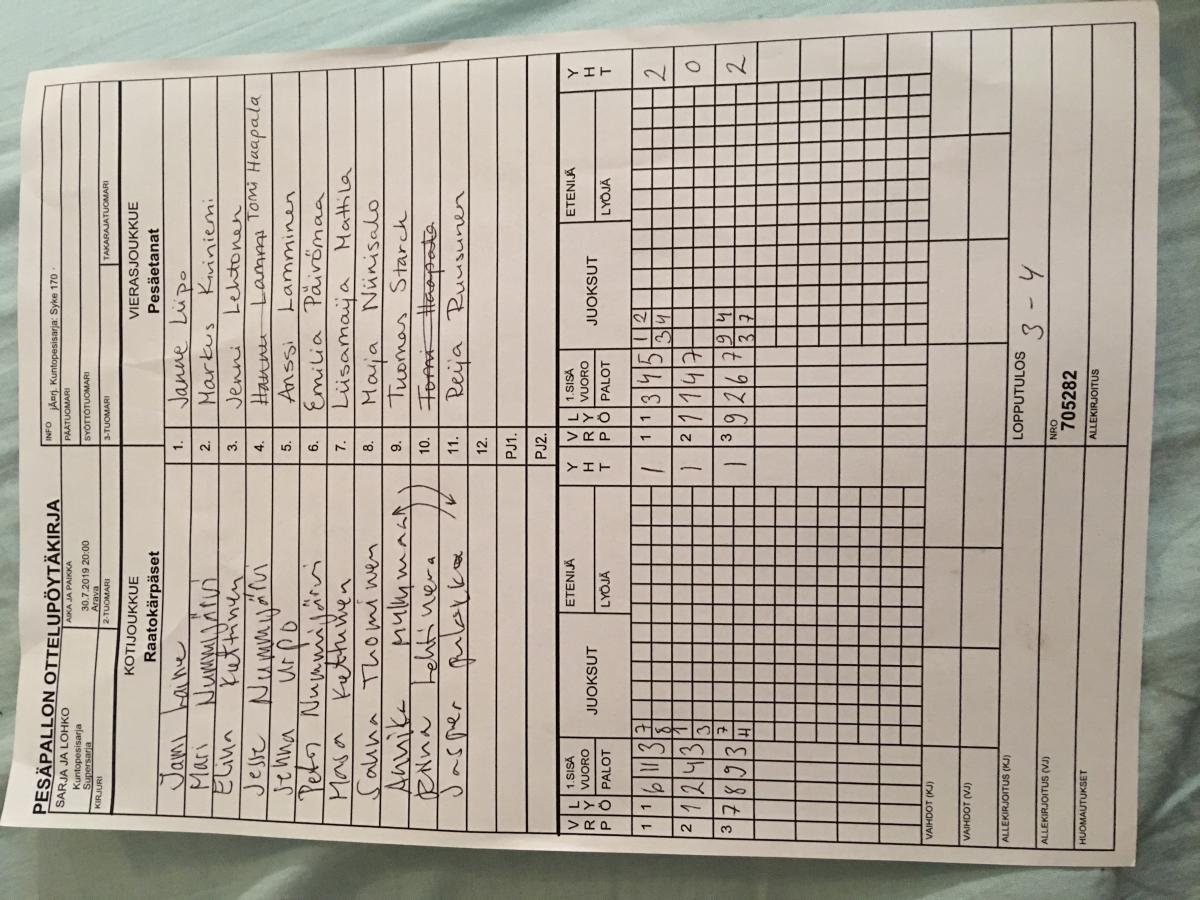 PESÄPALLON OTTELUPÖYTÄKIRJA
SARJA JA LOHKO
Kuntopesisarja
Supersarja
AIKA JA PAIKKA
30.7.2019 20:00
Arava
INFO jÃ¤rj. Kuntopesisarja: Syke 170
PÄÄTUOMARI
SYÖTTÖTUOMARI
KIRJURI
2-TUOMARI
3-TUOMARI
TAKARAJATUOMARI
KOTIJOUKKUE
Raatokärpäset
VIERASJOUKKUE
Pesäetanat
Jani Laine 1. Janne Liipo
Mari Nummijärvi 2. Markus Kiviniemi
Elina Kettunen 3. Jenni Lehtonen
Jesse Nummijärvi 4. Tomi Haapala
Jenna Urpo 5. Anssi Lamminen
Petri Nummijärvi 6. Emilia Päivömaa
Masa Kettunen 7. Liisamaija Mattila
Sanna Tuominen 8. Maija Niinisalo
Annika Myllymaa 9. Tuomas Starck
Lehtivera 10. Tomi Haapala
Jasper 11. Reija Ruusunen
12.
PJ1.
PJ2.
VRP LYÖ 1.SISÄ VUORO PALOT JUOKSUT ETENIJÄ LYÖJÄ YHT VRP LYÖ 1.SISÄ VUORO PALOT JUOKSUT ETENIJÄ LYÖJÄ YHT
1 1 6 11 3 7 1 1 1 3 4 5 1 2 2
8 3 4
2 1 2 4 3 1 1 2 1 1 4 7 0
3
3 7 8 9 3 7 1 3 9 2 6 7 9 4 2
4 3 7
VAIHDOT (KJ)
VAIHDOT (VJ)
ALLEKIRJOITUS (KJ)
LOPPUTULOS 3 - 4
ALLEKIRJOITUS (VJ)
NRO
705282
HUOMAUTUKSET
ALLEKIRJOITUS